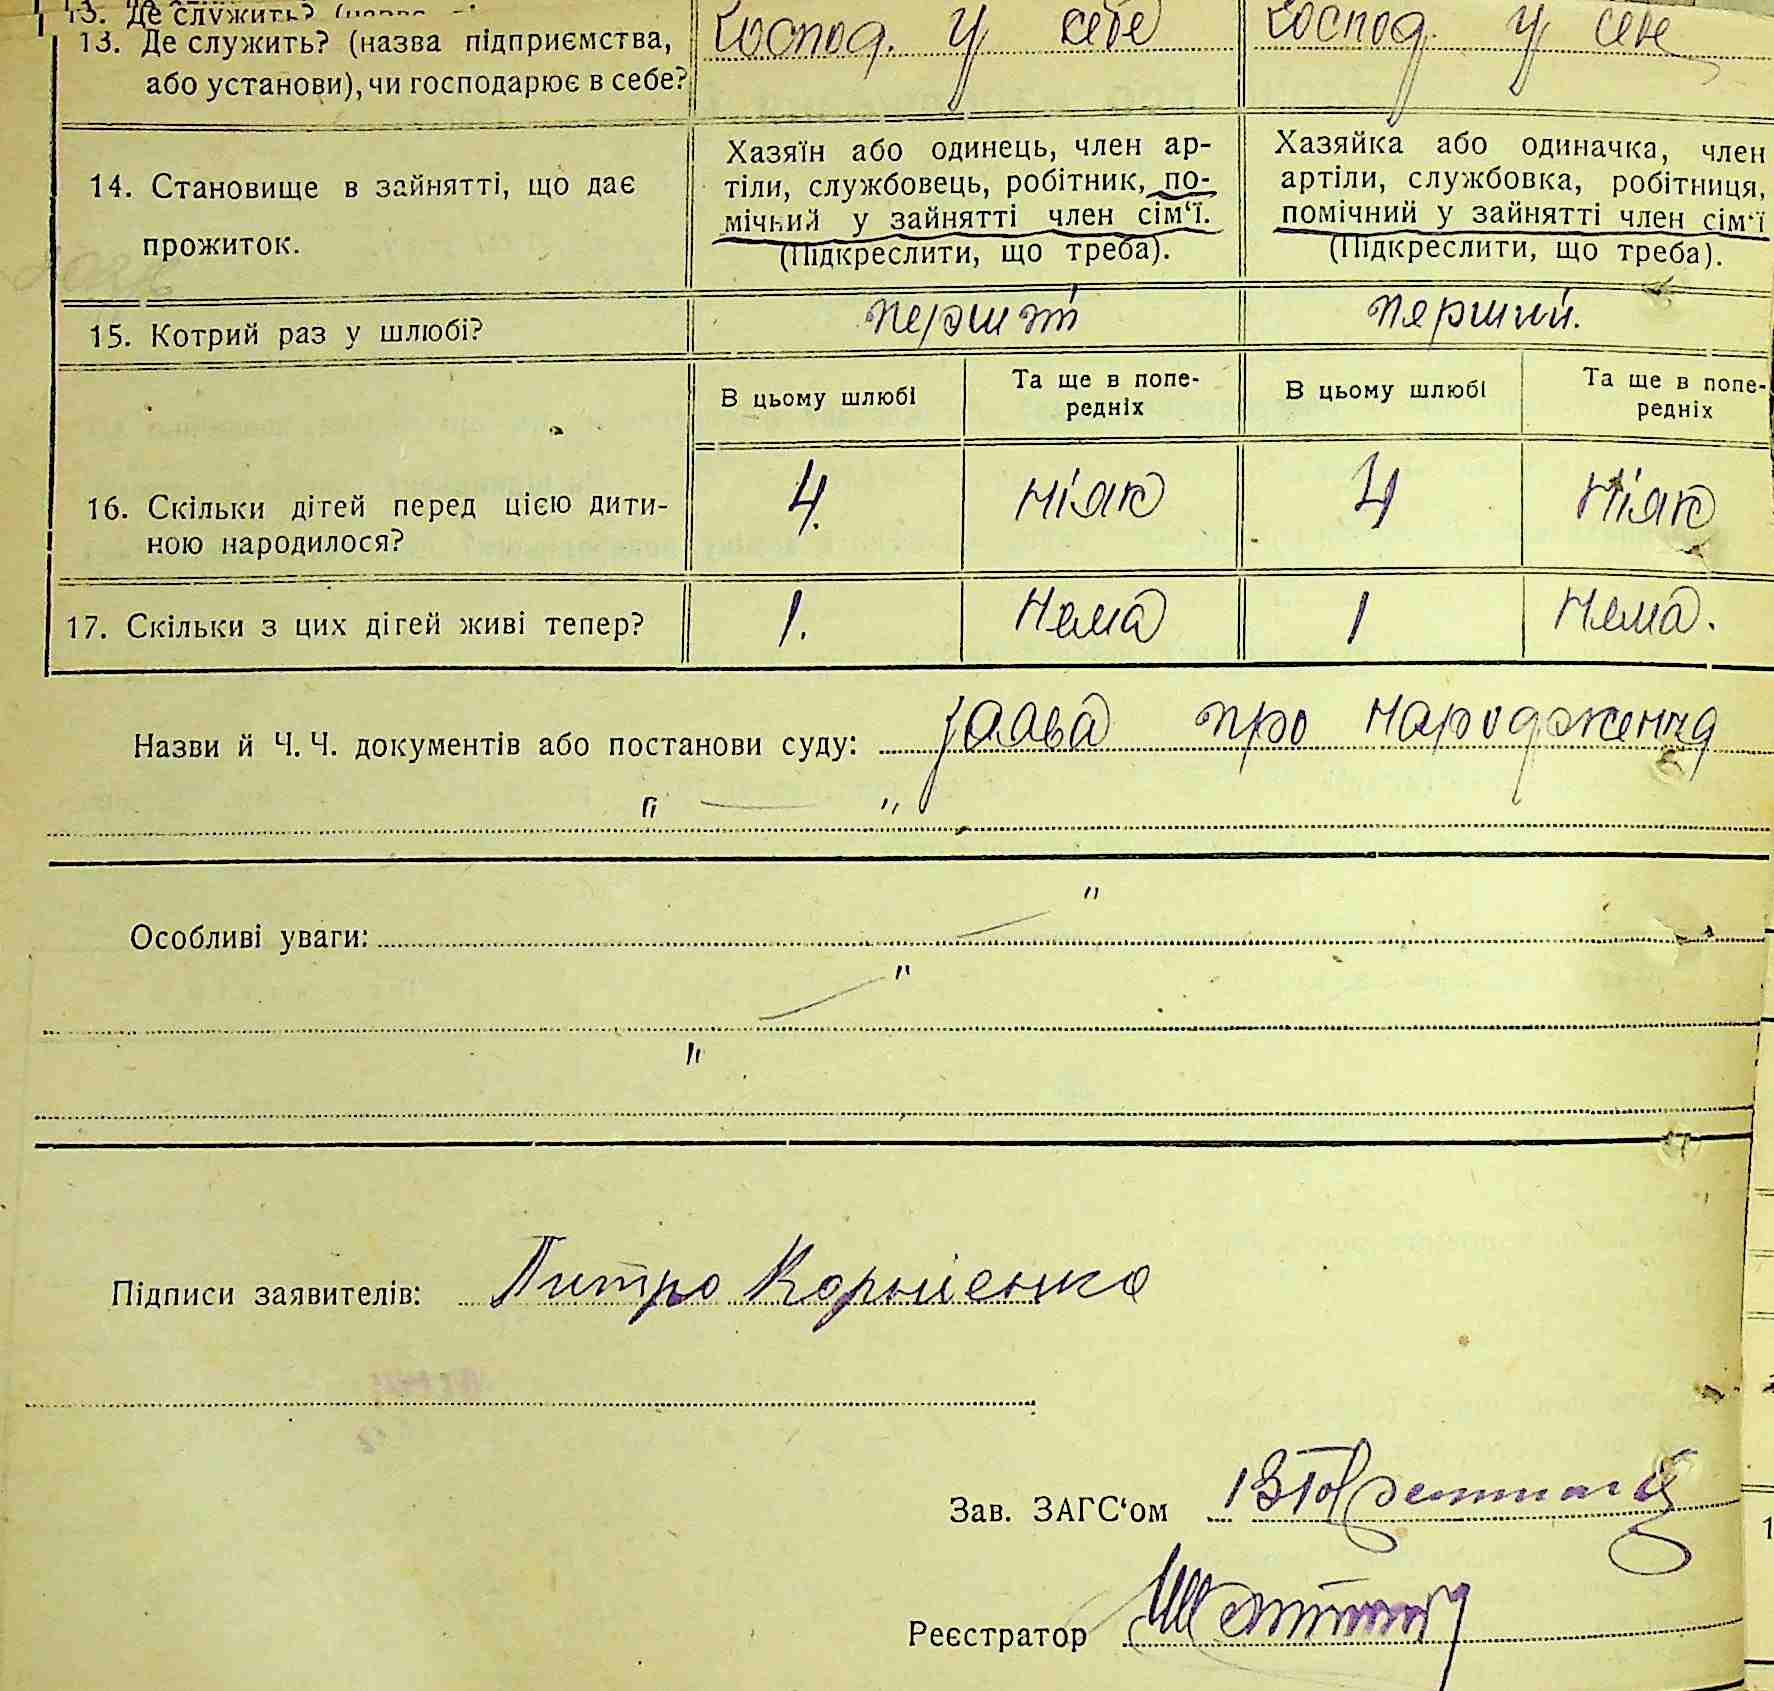 13. Де служить? (назва
13. Де служить? (назва підприємства, Господ. у себе Господ. у себе
або установи), чи господарює в себе?
14. Становище в зайнятті, що дає прожиток.
Хазяїн або одинець, член ар-
тіли, службовець, робітник, по-
мічний у зайнятті член сім‘ї.
(Підкреслити, що треба).
Хазяйка або одиначка, член
артіли, службовка, робітниця,
помічний у зайнятті член сім‘ї
(Підкреслити, що треба).
15. Котрий раз у шлюбі? перший перший.
В цьому шлюбі Та ще в попе-
редніх
В цьому шлюбі Та ще в попе-
редніх
16. Скільки дітей перед цією дити-
ною народилося? 4. ніяк 4 ніяк
17. Скільки з цих дітей живі тепер? 1. Нема 1 Нема.
Назви й Ч. Ч. документів або постанови суду: заава про народження
" — "
Особливі уваги: "
"
"
Підписи заявителів: Питро Корнієнко
Зав. ЗАГС‘ом
Реєстратор